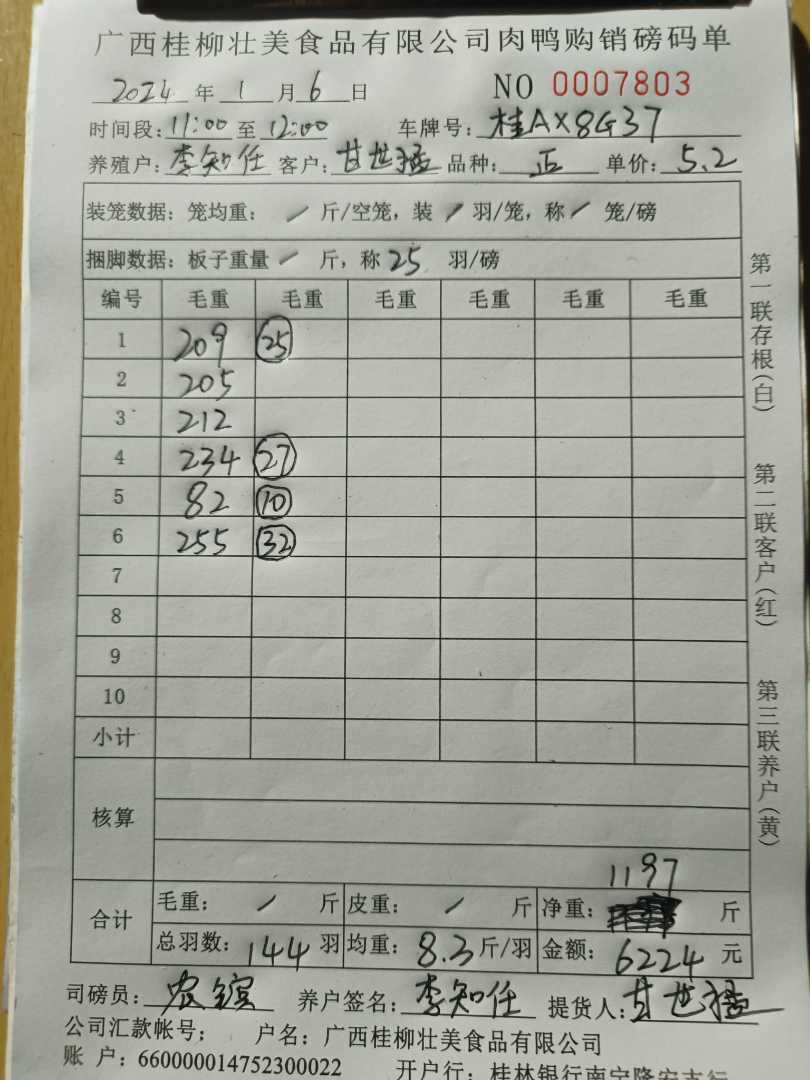 广西桂柳壮美食品有限公司肉鸭购销磅码单
2024 年 1 月 6 日 NO 0007803
时间段: 11:00 至 12:00 车牌号: 桂AX8G37
养殖户: 李知任 客户: 甘世猛 品种: 正 单价: 5.2
装笼数据: 笼均重: / 斤/空笼, 装 / 羽/笼, 称 / 笼/磅
捆脚数据: 板子重量 / 斤, 称 25 羽/磅
编号 毛重 毛重 毛重 毛重 毛重 毛重
1 209 25
2 205
3 212
4 234 27
5 82 10
6 255 32
7
8
9
10
小计
核算
1197
合计 毛重: / 斤 皮重: / 斤 净重: 斤
总羽数: 144 羽 均重: 8.3 斤/羽 金额: 6224 元
司磅员: 农镔 养户签名: 李知任 提货人: 甘世猛
公司汇款帐号; 户名: 广西桂柳壮美食品有限公司
账 户: 660000014752300022 开户行: 桂林银行南宁隆安支行
第一联存根(白) 第二联客户(红) 第三联养户(黄)